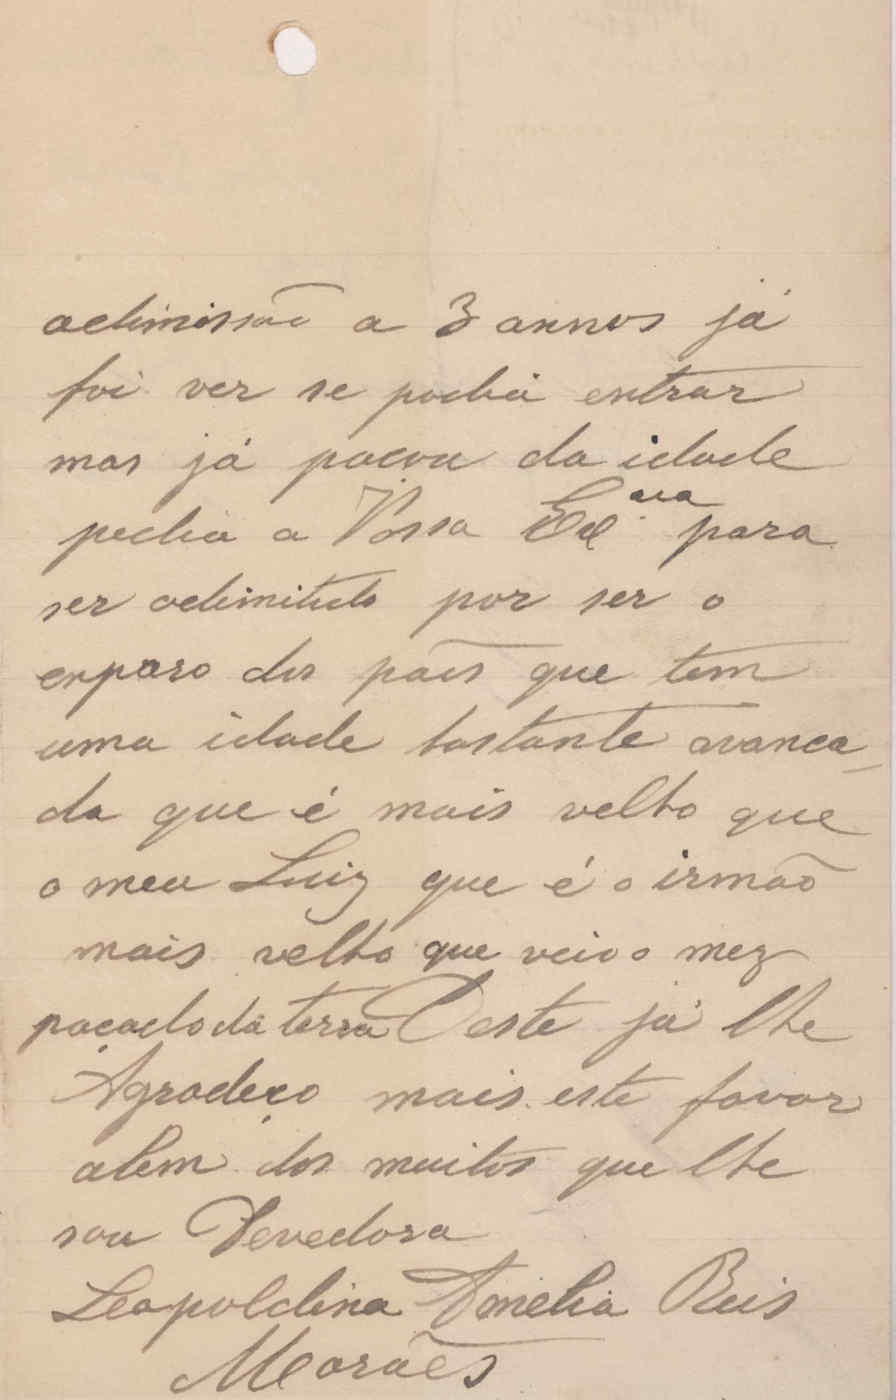 adimissão a 3 annos já
foi ver se podia entrar
mas já pacva da idade
pedia a Vossa Exª para
ser adimitido por ser o
enparo dos pães que tem
uma idade bastante avanca
da que é mais velho que
o meu Luiz que é o irmão
mais velho que veio o mez
pacado da terra Deste já lhe
Agradeço mais este favor
alem dos muitos que lhe
sou Devedora
Leopoldina Amelia Reis
Moraẽs